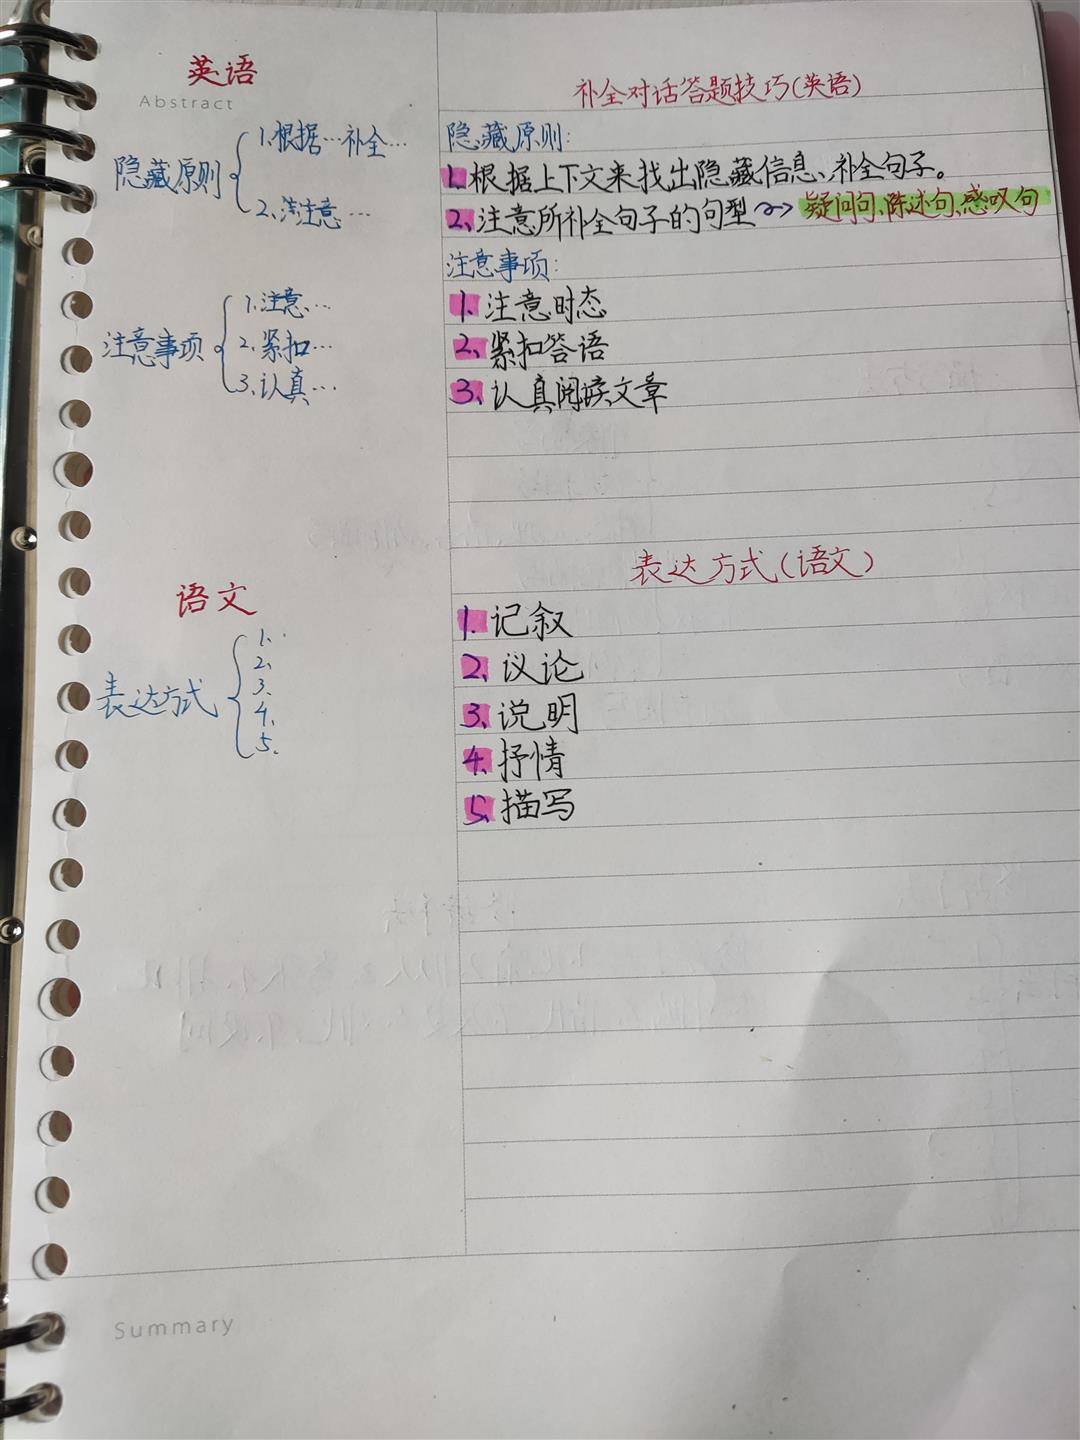 英语
Abstract
隐藏原则
1.根据…补全…
2、注意…
注意事项
1.注意…
2.紧扣…
3.认真…
补全对话答题技巧(英语)
隐藏原则:
1.根据上下文来找出隐藏信息、补全句子。
2、注意所补全句子的句型 ~> 疑问句、陈述句、感叹句
注意事项:
1.注意时态
2、紧扣答语
3、认真阅读文章
语文
表达方式
1、
2、
3、
4、
5、
表达方式(语文)
1.记叙
2、议论
3、说明
4.抒情
5、描写
Summary